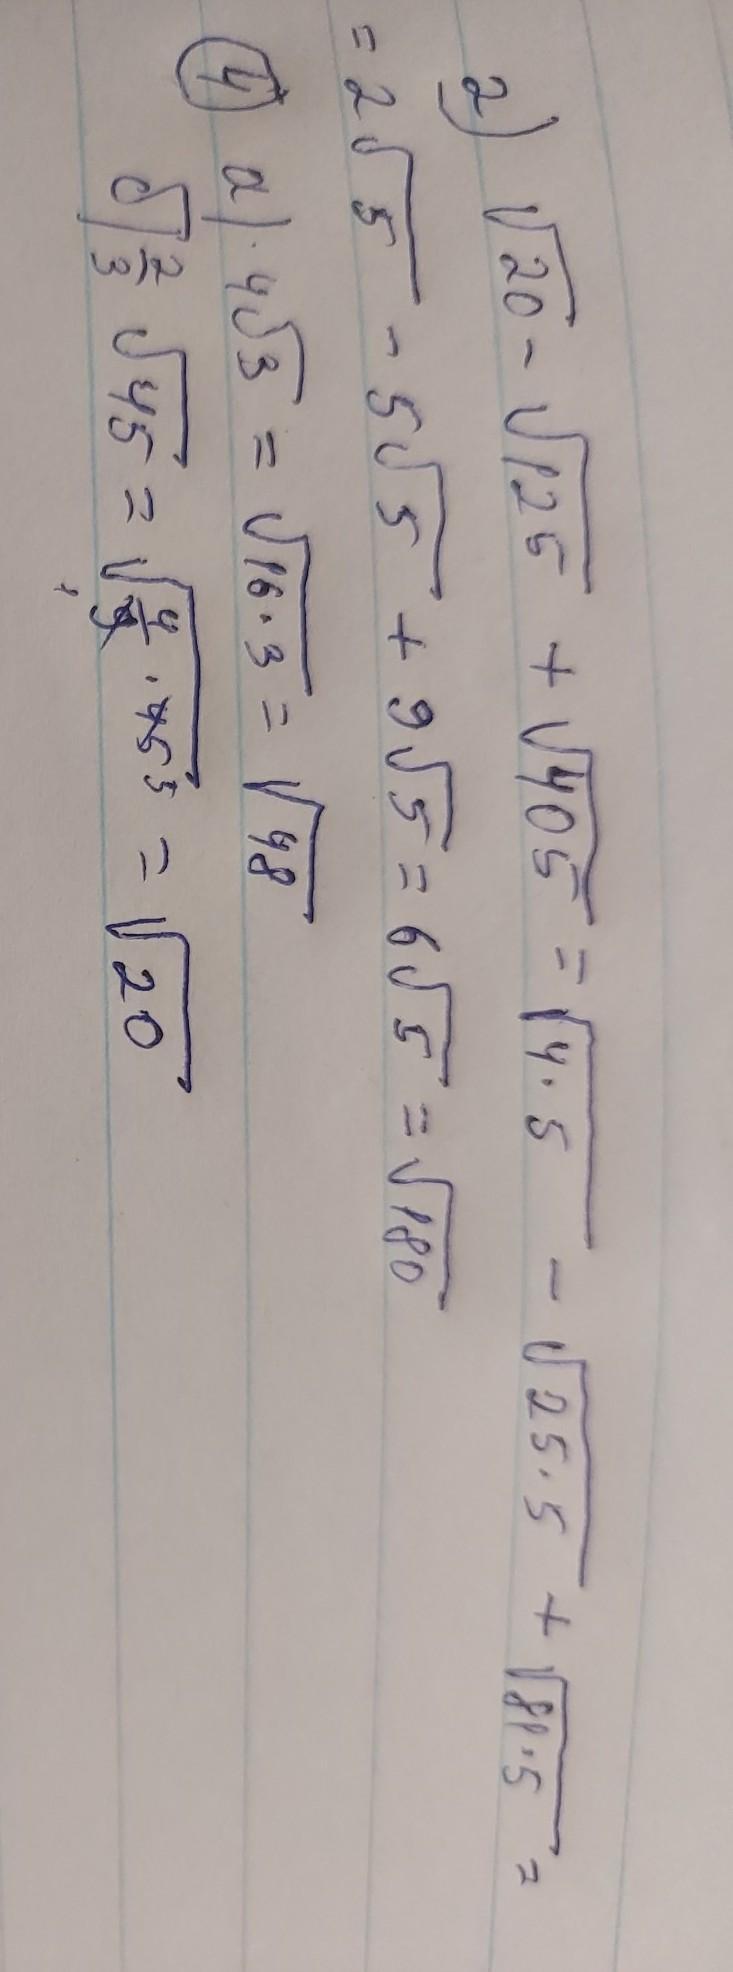 2) √20 - √125 + √405 = √4·5 - √25·5 + √81·5 =
= 2√5 - 5√5 + 9√5 = 6√5 = √180
④ а) 4√3 = √16·3 = √48
б) 2/3 √45 = √4/9·45⁵ = √20